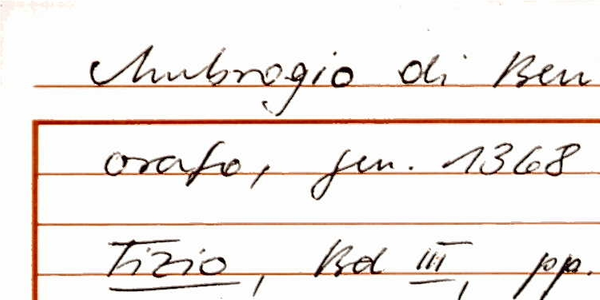 Ambrogio di Ben
orafo, gen. 1368
Tizio, Bd III, pp.